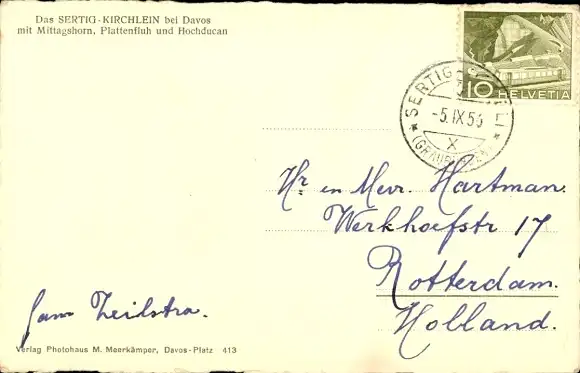 Das SERTIG-KIRCHLEIN bei Davos
mit Mittagshorn, Plattenfluh und Hochducan
10 HELVETIA
SERTIG
-5.IX.56
X
Hr en Mevr. Hartman.
Werkhoefstr 17
Rotterdam.
Holland.
fam Zeilstra.
Verlag Photohaus M. Meerkämper, Davos-Platz 413